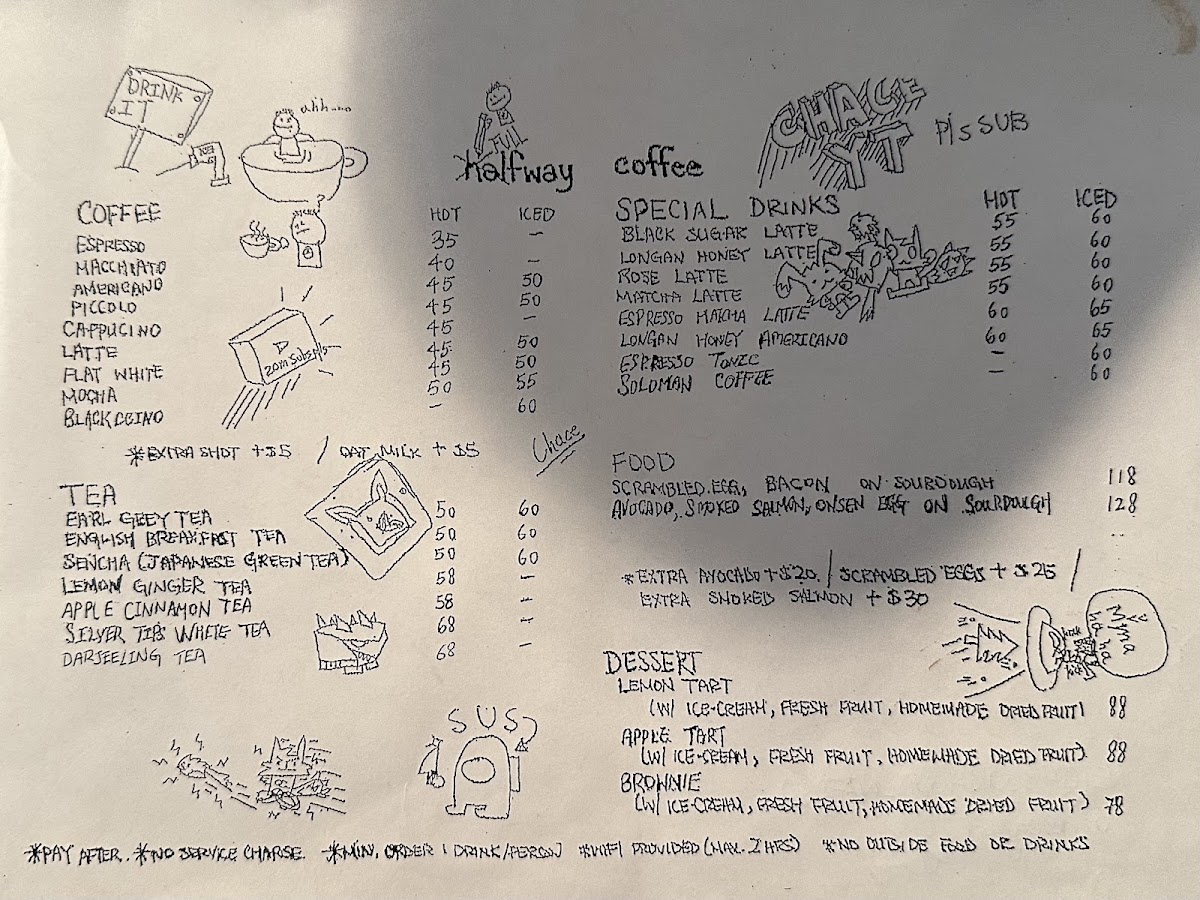 DRINK
IT
ahh....
halfway coffee
CHACE
IT
P/s SUB
COFFEE HOT ICED
ESPRESSO 35 –
MACCHIATO 40 –
AMERICANO 45 50
PICCOLO 45 50
CAPPUCINO 45 –
LATTE 45 50
FLAT WHITE 45 50
MOCHA 50 55
BLACKCCINO – 60
*EXTRA SHOT +$5 / OAT MILK +$5
Chace
TEA
EARL GREY TEA 50 60
ENGLISH BREAKFAST TEA 50 60
SENCHA (JAPANESE GREEN TEA) 50 60
LEMON GINGER TEA 58 –
APPLE CINNAMON TEA 58 –
SILVER TIPS WHITE TEA 68 –
DARJEELING TEA 68 –
SUS
SPECIAL DRINKS HOT ICED
BLACK SUGAR LATTE 55 60
LONGAN HONEY LATTE 55 60
ROSE LATTE 55 60
MATCHA LATTE 55 60
ESPRESSO MATCHA LATTE 60 65
LONGAN HONEY AMERICANO 60 65
ESPRESSO TONIC – 60
SOLOMAN COFFEE – 60
FOOD
SCRAMBLED EGG, BACON ON SOURDOUGH 118
AVOCADO, SMOKED SALMON, ONSEN EGG ON SOURDOUGH 128
*EXTRA AVOCADO +$20 / SCRAMBLED EGGS +$25 /
EXTRA SMOKED SALMON +$30
DESSERT
LEMON TART
(W/ ICE-CREAM, FRESH FRUIT, HOMEMADE DRIED FRUIT) 88
APPLE TART
(W/ ICE-CREAM, FRESH FRUIT, HOMEWADE DRIED FRUIT) 88
BROWNIE
(W/ ICE-CREAM, FRESH FRUIT, HOMEMADE DRIED FRUIT) 78
*PAY AFTER. *NO SERVICE CHARGE *MIN. ORDER 1 DRINK/PERSON *WIFI PROVIDED (MAX. 2 HRS) *NO OUTSIDE FOOD OR DRINKS